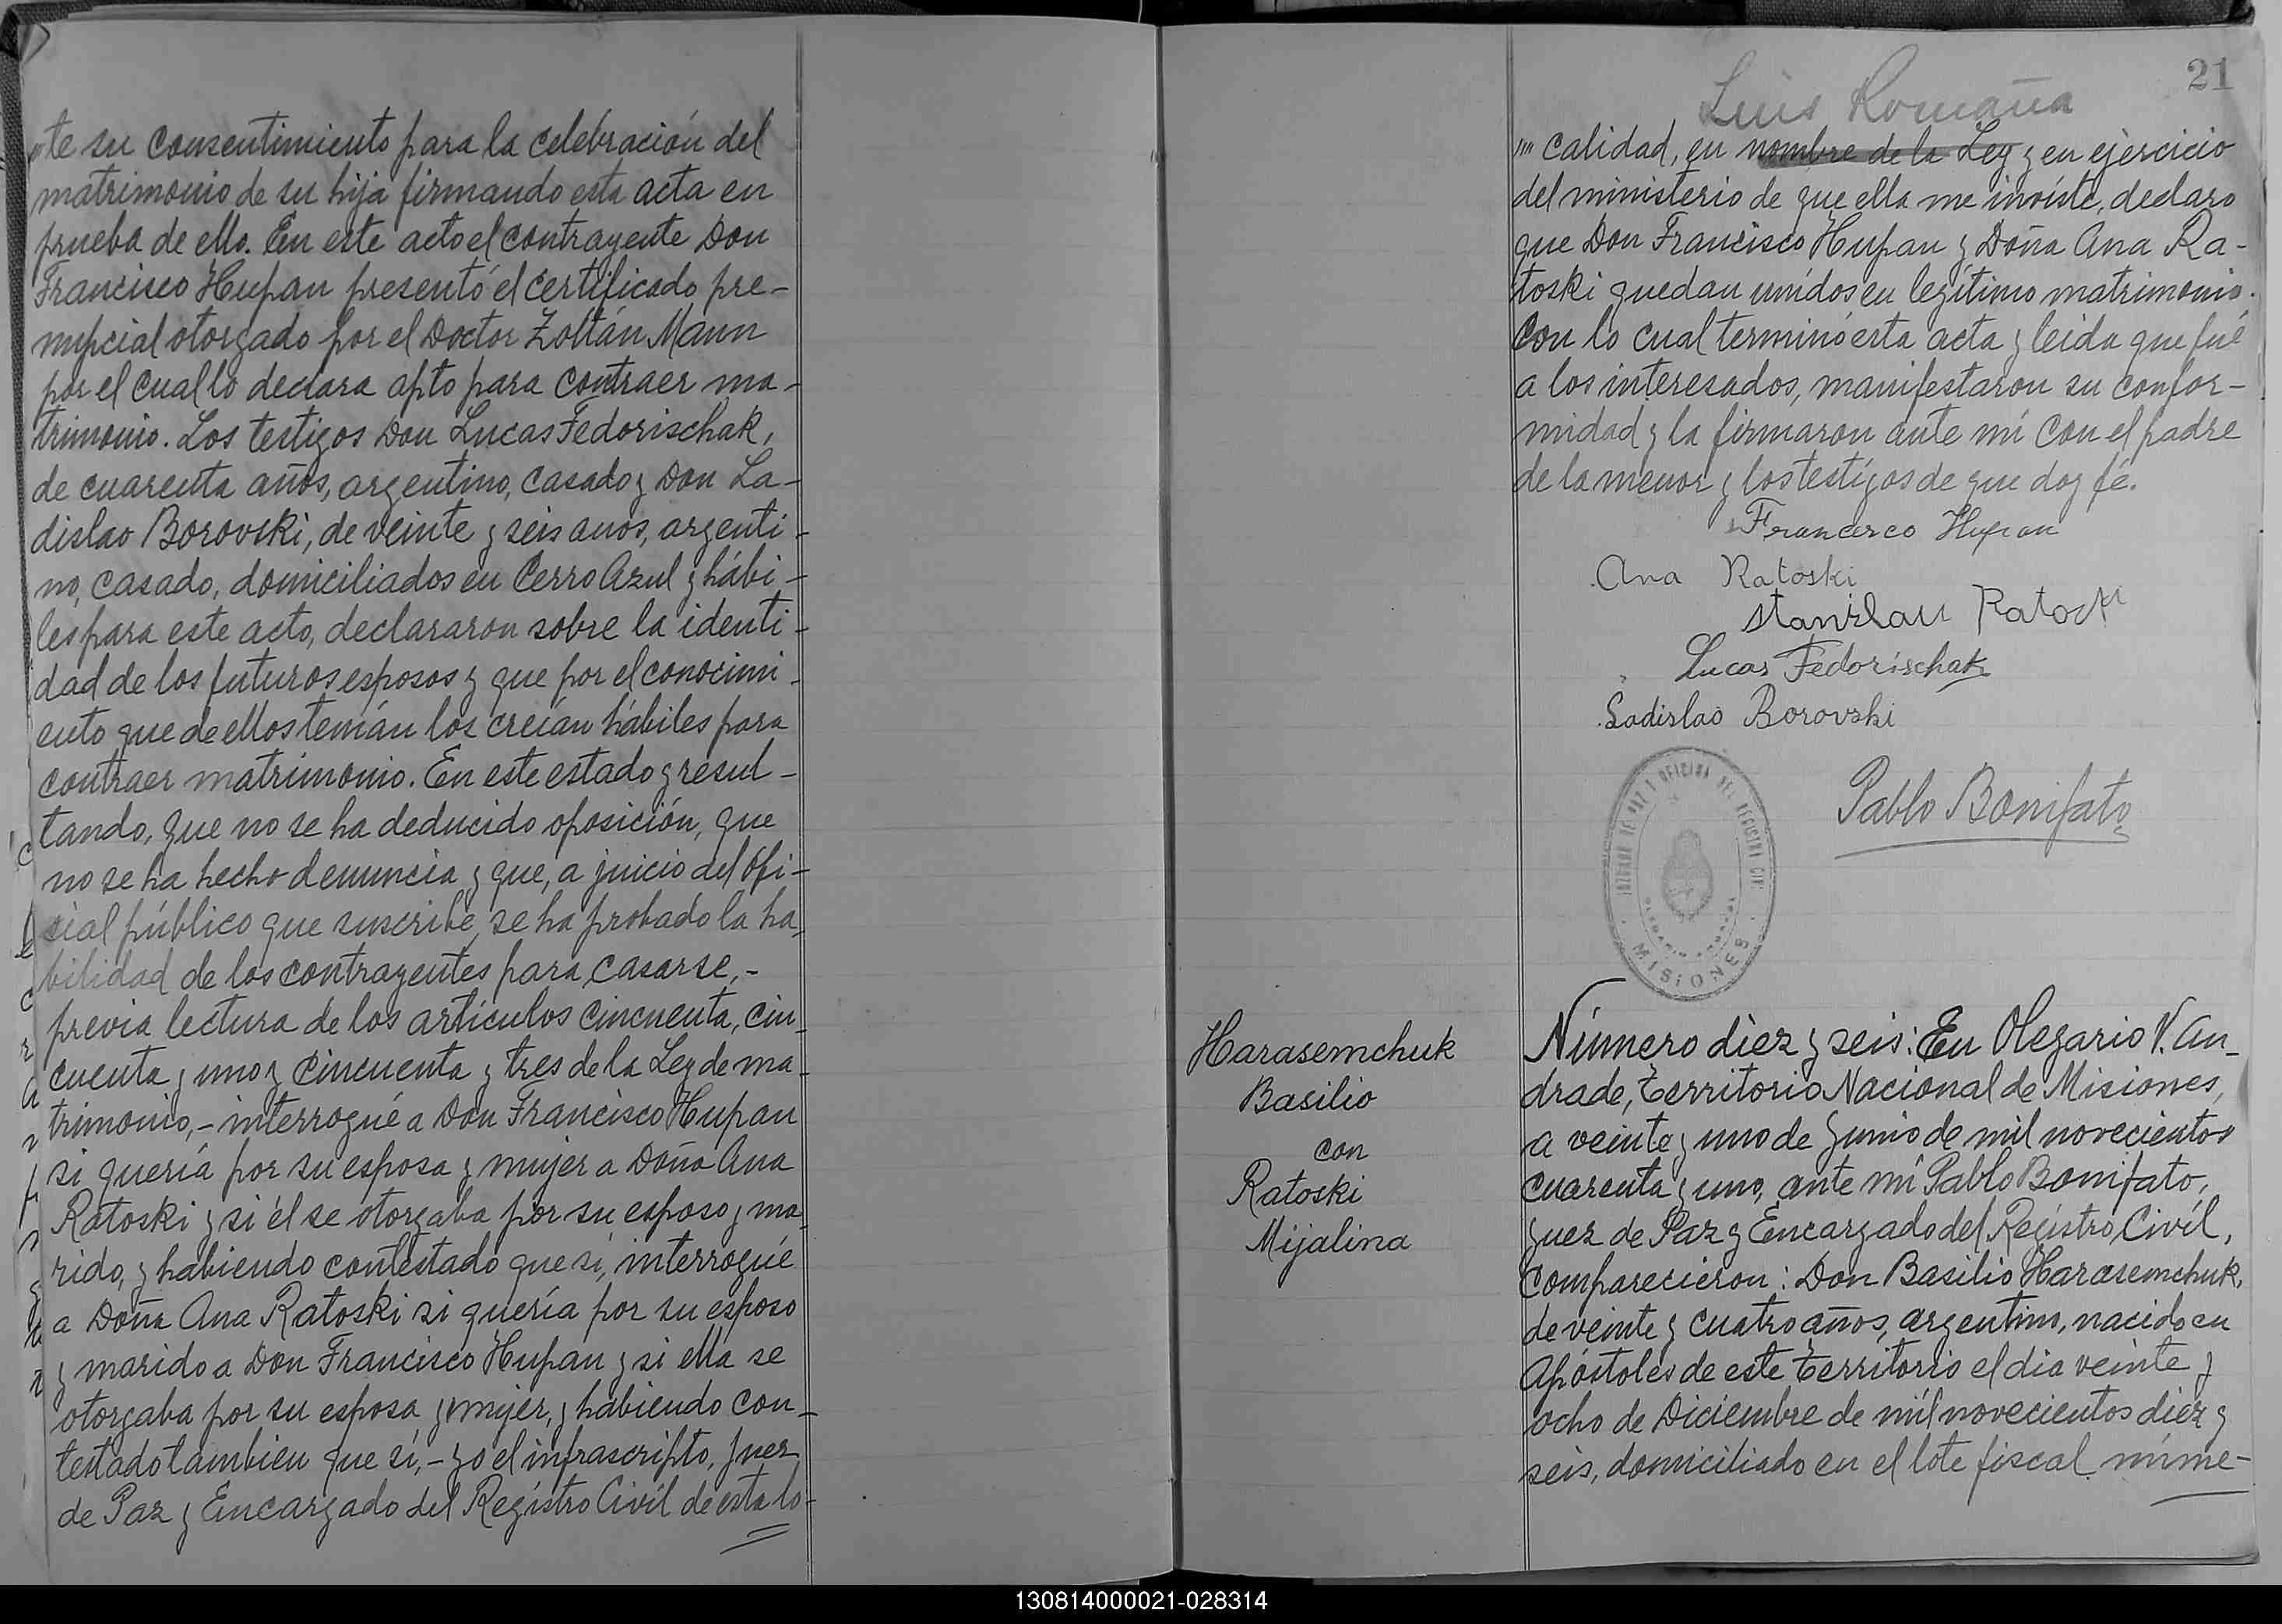 te su consentimiento para la celebración del
matrimonio de su hija firmando esta acta en
prueba de ello. En este acto el contrayente Don
Francisco Hupan presentó el certificado pre-
nupcial otorgado por el Doctor Zoltán Mann
por el cual lo declara apto para contraer ma-
trimonio. Los testigos Don Lucas Fedorischak,
de cuarenta años, argentino, casado y Don La-
dislao Borovski, de veinte y seis anos, argenti-
no, casado, domiciliados en Cerro Azul y hábi-
les para este acto, declararon sobre la identi-
dad de los futuros esposos y que por el conocimi-
ento que de ellos tenían los creían hábiles para
contraer matrimonio. En este estado y resul-
tando, que no se ha deducido oposición, que
no se ha hecho denuncia y que, a juicio del Ofi-
cial público que suscribe, se ha probado la ha-
bilidad de los contrayentes para casarse,-
previa lectura de los artículos cincuenta, cin-
cuenta y uno y cincuenta y tres de la Ley de ma-
trimonio,- interrogué a Don Francisco Hupan
si quería por su esposa y mujer a Doña Ana
Ratoski y si él se otorgaba por su esposo y ma-
rido, y habiendo contestado que si, interrogué
a Doña Ana Ratoski si quería por su esposo
y marido a Don Francisco Hupan y si ella se
otorgaba por su esposa y mujer, y habiendo con-
testado tambien que sí,- yo el infrascripto, Juez
de Paz y Encargado del Registro Civil de esta lo-
21
Luis Romaña
"" calidad, en nombre de la Ley y en ejercicio
del ministerio de que ella me inviste, declaro
que Don Francisco Hupan y Doña Ana Ra-
toski quedan unidos en legítimo matrimonio.
Con lo cual terminó esta acta y leida que fué
a los interesados, manifestaron su confor-
midad y la firmaron ante mí con el padre
de la menor y los testigos de que doy fé.
Francisco Hupan
Ana Ratoski
Stanislau Ratoski
Lucas Fedorischak
Ladislao Borovski
Pablo Bonifato
JUZGADO DE PAZ Y OFICINA DEL REGISTRO CIVIL
MISIONES
Harasemchuk
Basilio
con
Ratoski
Mijalina
Número diez y seis: En Olegario V. An-
drade, territorio Nacional de Misiones,
a veinte y uno de Junio de mil novecientos
cuarenta y uno, ante mí Pablo Bonifato,
Juez de Paz y Encargado del Registro Civil,
comparecieron: Don Basilio Harasemchuk,
de veinte y cuatro años, argentino, nacido en
Apóstoles de este territorio el dia veinte y
ocho de Diciembre de mil novecientos diez y
seis, domiciliado en el lote fiscal núme-
130814000021-028314